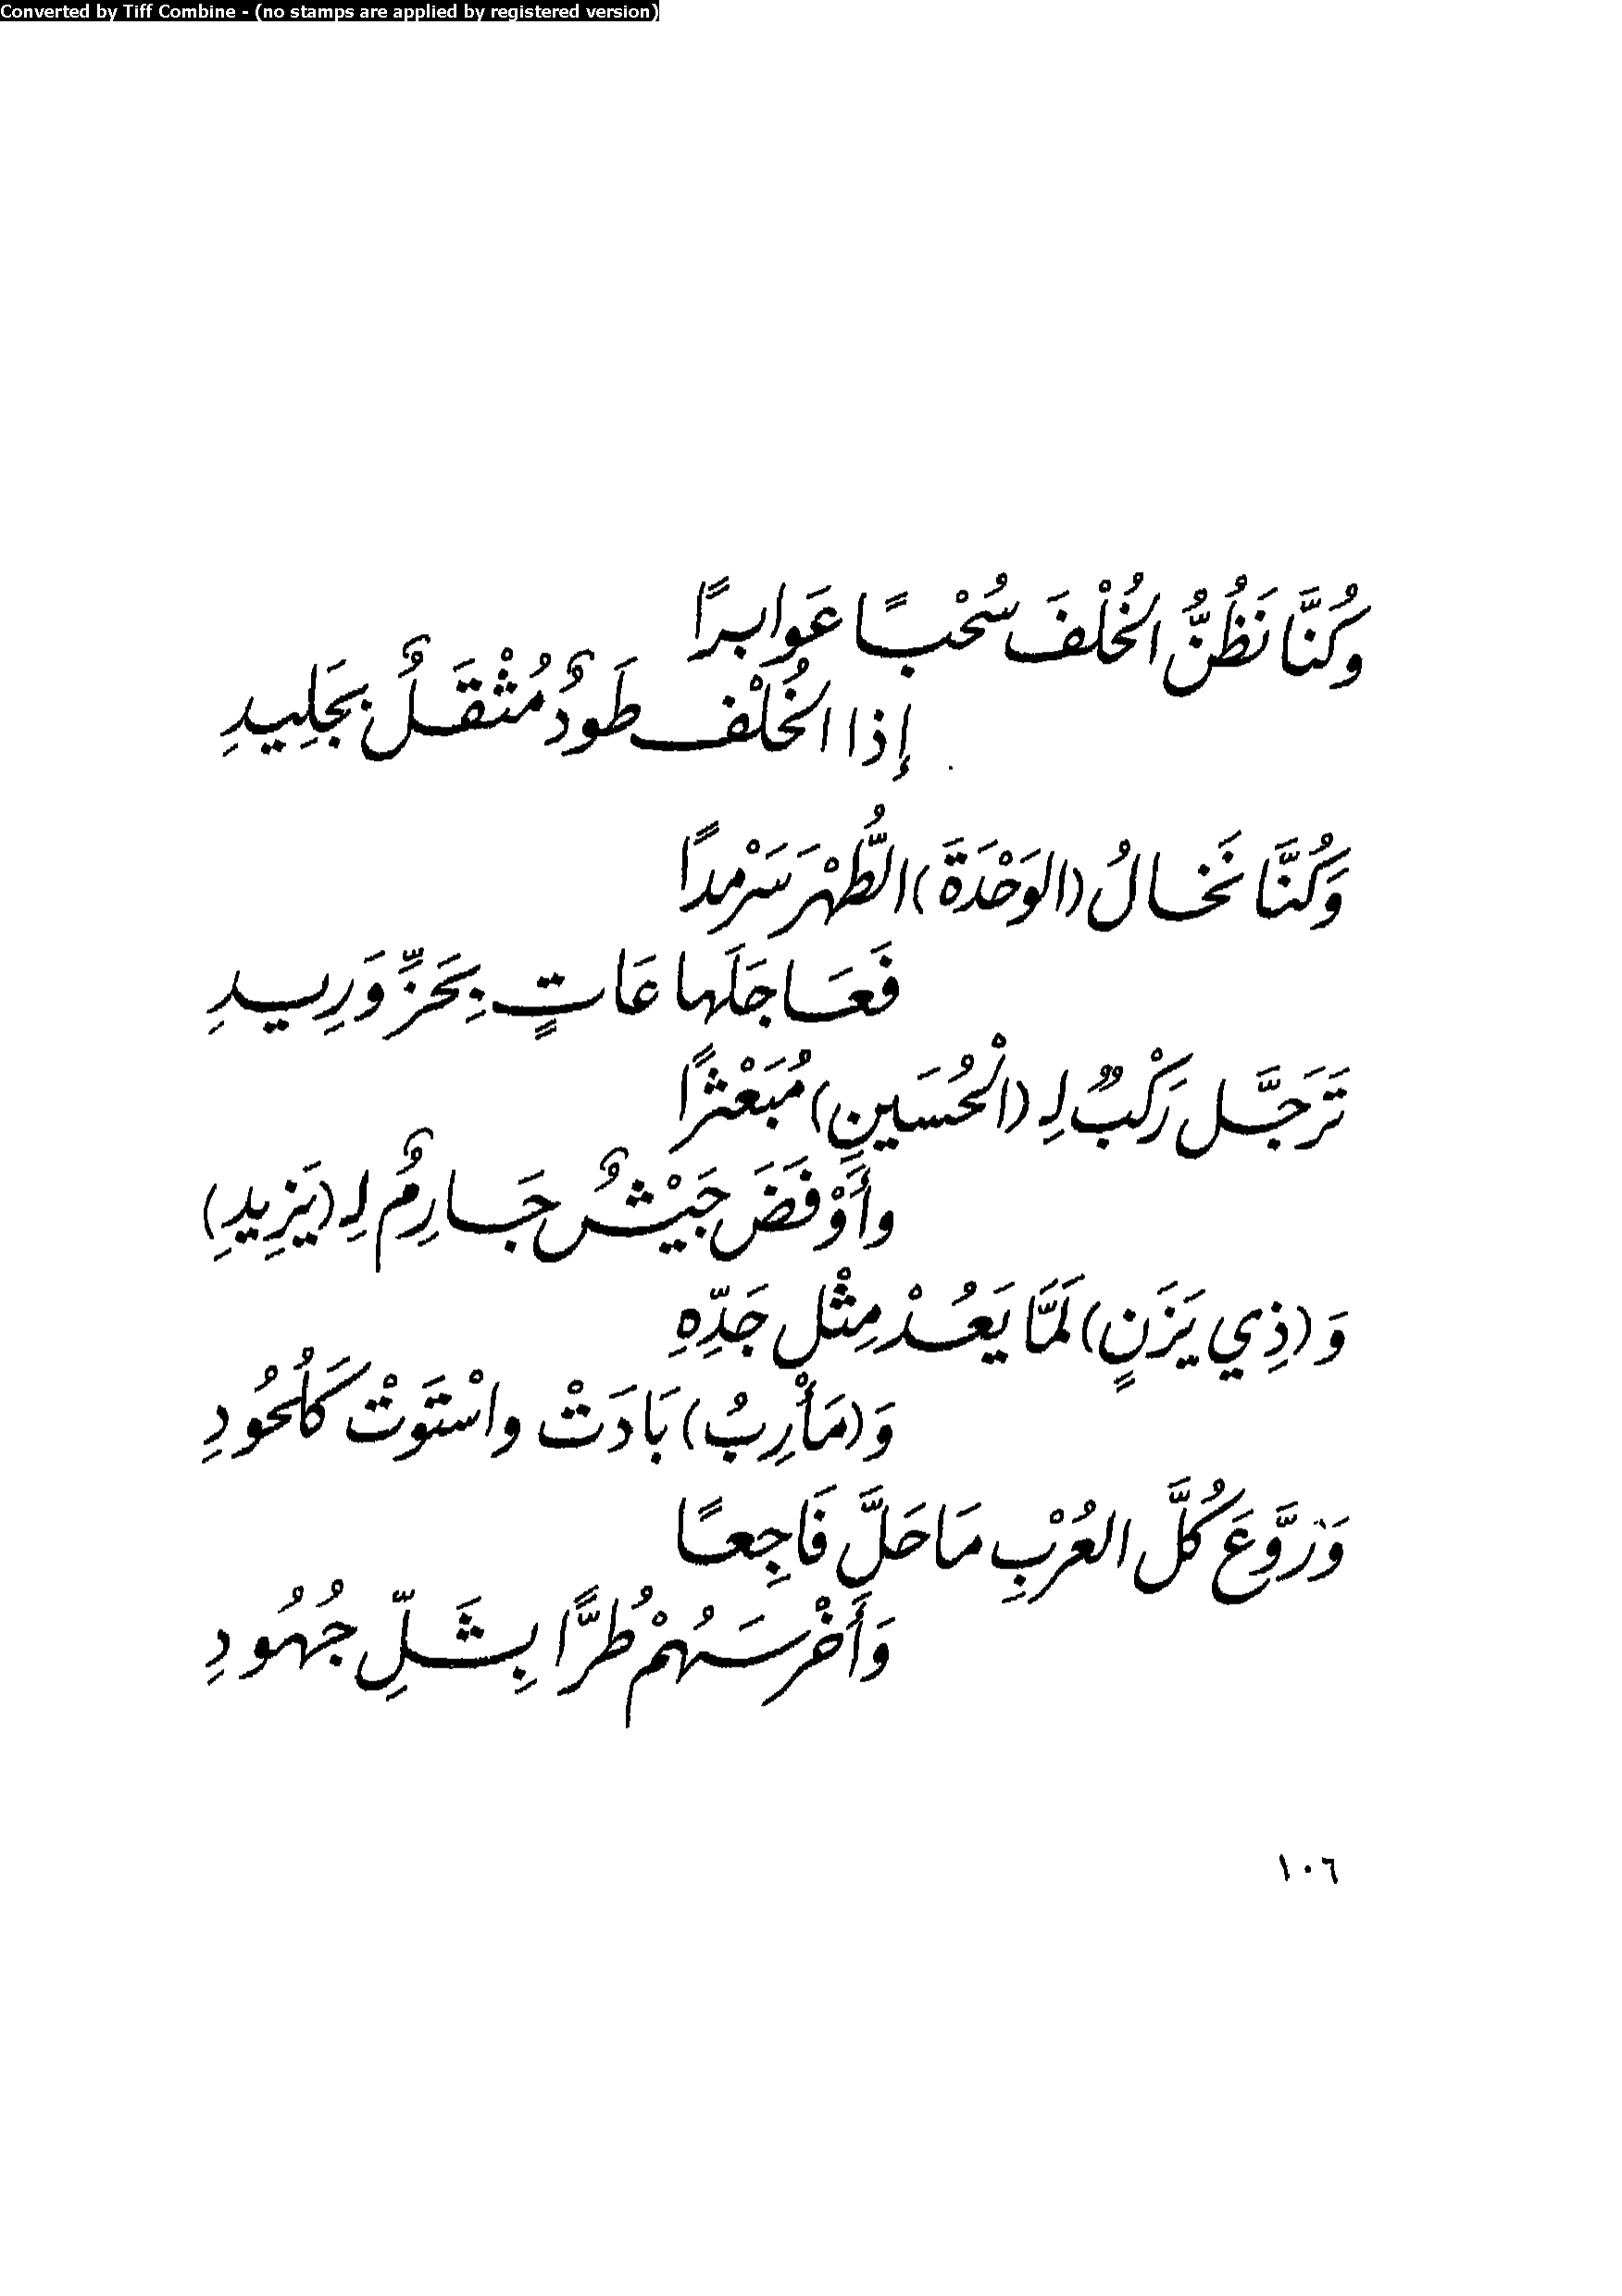 Converted by Tiff Combine - (no stamps are applied by registered version)
وكُنَّا نَظُنُّ الخُلْفَ سُحْبًا عَوابرًا
إِذا الخُلْف طَودٌ مُثْقَلٌ بجَلِيدِ
وَكُنَّا نَخالُ (الوَحْدَةَ) الطُّهْرَ سَرْمدًا
فَعَاجَلَها عَاتٍ بِحَزِّ وَرِيدِ
تَرَجَّل رَكْبٌ لِـ (الْحُسَينِ) مُبَعْثرًا
وأَوْفَضَ جَيْشٌ جَارِمٌ لِـ (يَزِيدِ)
وَ (ذِي يَزَنٍ) لَمَّا يَعُدْ مِثْل جَدِّهِ
وَ (مَأْرِبُ) بَادَتْ واسْتَوَتْ كَلُحُودِ
وَرَوَّعَ كُلَّ العُرْبِ مَا حَلَّ فَاجِعًا
وَأَخْرسَهُمْ طُرًّا بِشَلِّ جُهُودِ
١٠٦